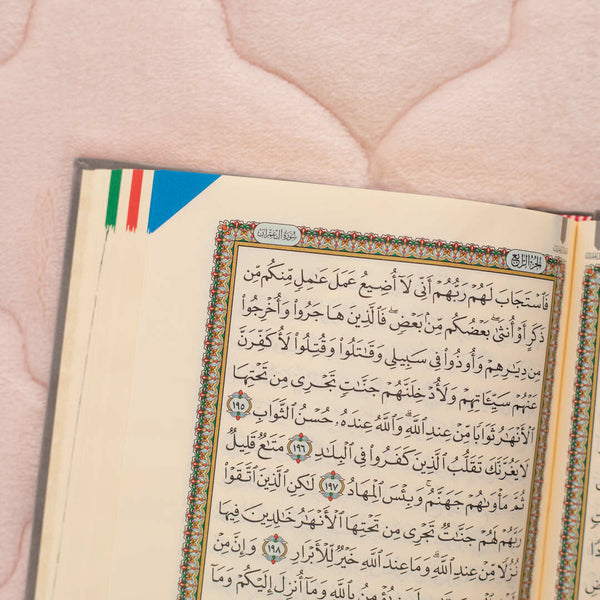 سورة آل عمران
الجزء الرابع
فَٱسْتَجَابَ لَهُمْ رَبُّهُمْ أَنِّى لَآ أُضِيعُ عَمَلَ عَٰمِلٍ مِّنكُم مِّن
ذَكَرٍ أَوْ أُنثَىٰۖ بَعْضُكُم مِّنۢ بَعْضٍۖ فَٱلَّذِينَ هَاجَرُوا۟ وَأُخْرِجُوا۟
مِن دِيَٰرِهِمْ وَأُوذُوا۟ فِى سَبِيلِى وَقَٰتَلُوا۟ وَقُتِلُوا۟ لَأُكَفِّرَنَّ
عَنْهُمْ سَيِّـَٔاتِهِمْ وَلَأُدْخِلَنَّهُمْ جَنَّٰتٍ تَجْرِى مِن تَحْتِهَا
ٱلْأَنْهَٰرُ ثَوَابًا مِّنْ عِندِ ٱللَّهِۗ وَٱللَّهُ عِندَهُۥ حُسْنُ ٱلثَّوَابِ ١٩٥
لَا يَغُرَّنَّكَ تَقَلُّبُ ٱلَّذِينَ كَفَرُوا۟ فِى ٱلْبِلَٰدِ ١٩٦ مَتَٰعٌ قَلِيلٌ
ثُمَّ مَأْوَىٰهُمْ جَهَنَّمُۚ وَبِئْسَ ٱلْمِهَادُ ١٩٧ لَٰكِنِ ٱلَّذِينَ ٱتَّقَوْا۟
رَبَّهُمْ لَهُمْ جَنَّٰتٌ تَجْرِى مِن تَحْتِهَا ٱلْأَنْهَٰرُ خَٰلِدِينَ فِيهَا
نُزُلًا مِّنْ عِندِ ٱللَّهِۗ وَمَا عِندَ ٱللَّهِ خَيْرٌ لِّلْأَبْرَارِ ١٩٨ وَإِنَّ مِنْ
لَمَن يُؤْمِنُ بِٱللَّهِ وَمَآ أُنزِلَ إِلَيْكُمْ وَمَآ